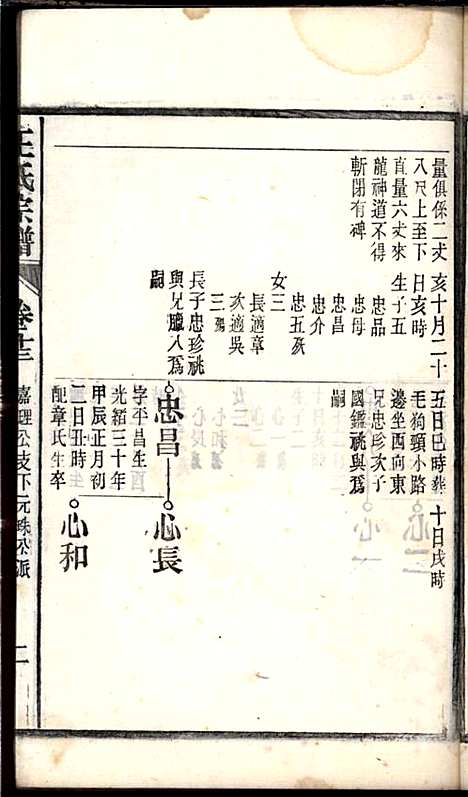 量俱係二丈
八尺上至下
直量六丈來
龍神道不得
斬閉有碑
亥十月二十
日亥時
生子五
忠品
忠母
忠昌
忠介
忠五殀
女三
長適章
次適吳
三殤
長子忠珍祧
與兄臘八爲
嗣
五日巳時葬
毛狗頸小路
邊坐酉向東
兄忠珍次子
國鑑祧與爲
嗣
忠昌
字平昌生
光緒三十年
甲辰正月初
二日丑時
配章氏生卒
十日戌時
心長
心和
王氏宗譜
卷十三
嘉理公支下元銖公派
二